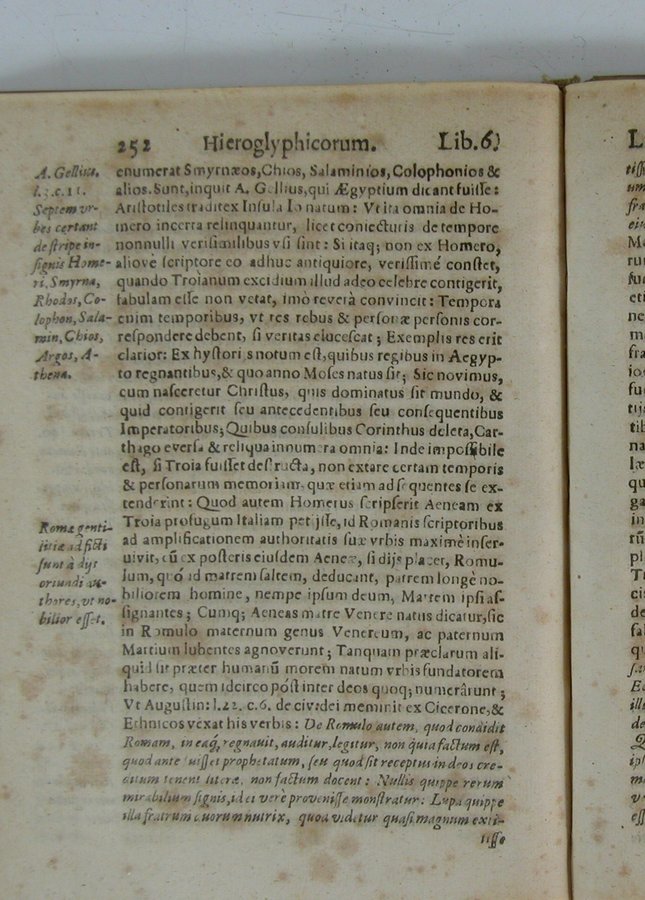 252 Hieroglyphicorum. Lib. 6.
A. Gellius.
l. 3. c. 11.
Septem vr-
bes certant
de stirpe in-
signis Home-
ri, Smyrna,
Rhodos, Co-
lophon, Sala-
min, Chios,
Argos, A-
thenæ.
enumerat Smyrnæos, Chios, Salaminios, Colophonios &
alios. Sunt, inquit A. Gellius, qui Ægyptium dicant fuiſſe:
Ariſtotiles tradit ex Inſula Io natum: Vt ita omnia de Ho-
mero incerta relinquantur, licet coniecturis de tempore
nonnulli veriſimilibus vſi ſint: Si itaq; non ex Homero,
aliove ſcriptore eo adhuc antiquiore, veriſſimé conſtet,
quando Troianum excidium illud adeo celebre contigerit,
fabulam eſſe non vetat, imò reverà convincit: Tempora
enim temporibus, vt res rebus & perſonæ perſonis cor-
reſpondere debent, ſi veritas eluceſcat; Exemplis res erit
clarior: Ex hyſtoriis notum eſt, quibus regibus in Aegyp-
to regnantibus, & quo anno Moſes natus ſit; Sic novimus,
cum naſceretur Chriſtus, quis dominatus ſit mundo, &
quid contigerit ſeu antecedentibus ſeu conſequentibus
Imperatoribus; Quibus conſulibus Corinthus deleta, Car-
thago everſa & reliqua innumera omnia: Inde impoſſibile
eſt, ſi Troia fuiſſet deſtructa, non extare certam temporis
& perſonarum memoriam, quæ etiam ad ſequentes ſe ex-
tenderint: Quod autem Homerus ſcripſerit Aeneam ex
Troia profugum Italiam petijſſe, id Romanis ſcriptoribus
ad amplificationem authoritatis ſuæ vrbis maximè inſer-
uivit, cũ ex poſteris eiuſdem Aeneæ, ſi dijs placet, Romu-
lum, quo ad matrem ſaltem, deducant, patrem longè no-
biliorem homine, nempe ipſum deum, Martem ipſi aſ-
ſignantes; Cumq; Aeneas matre Venere natus dicatur, ſic
in Romulo maternum genus Venereum, ac paternum
Martium lubentes agnoverunt; Tanquam præclarum ali-
quid ſit præter humanũ morem natum vrbis fundatorem
habere, quem idcirco póſt inter deos quoq; numerârunt;
Vt Auguſtin: l. 22. c. 6. de civ: dei meminit ex Cicerone, &
Ethnicos vexat his verbis: De Romulo autem, quod condidit
Romam, in eaq́; regnauit, auditur, legitur, non quia factum eſt,
quod ante fuiſſet prophetatum, ſeu quod ſit receptus in deos cre-
ditum tenent literæ, non factum docent: Nullis quippe rerum
mirabilium ſignis, id ei verè proveniſſe monſtratur: Lupa quippe
illa fratrum duorum nutrix, quod videtur quaſi magnum exti-
tiſſe
Romæ genti-
litiæ ad ficti
sunt à dijs
oriundi au-
thores, vt no-
bilior eſſet.